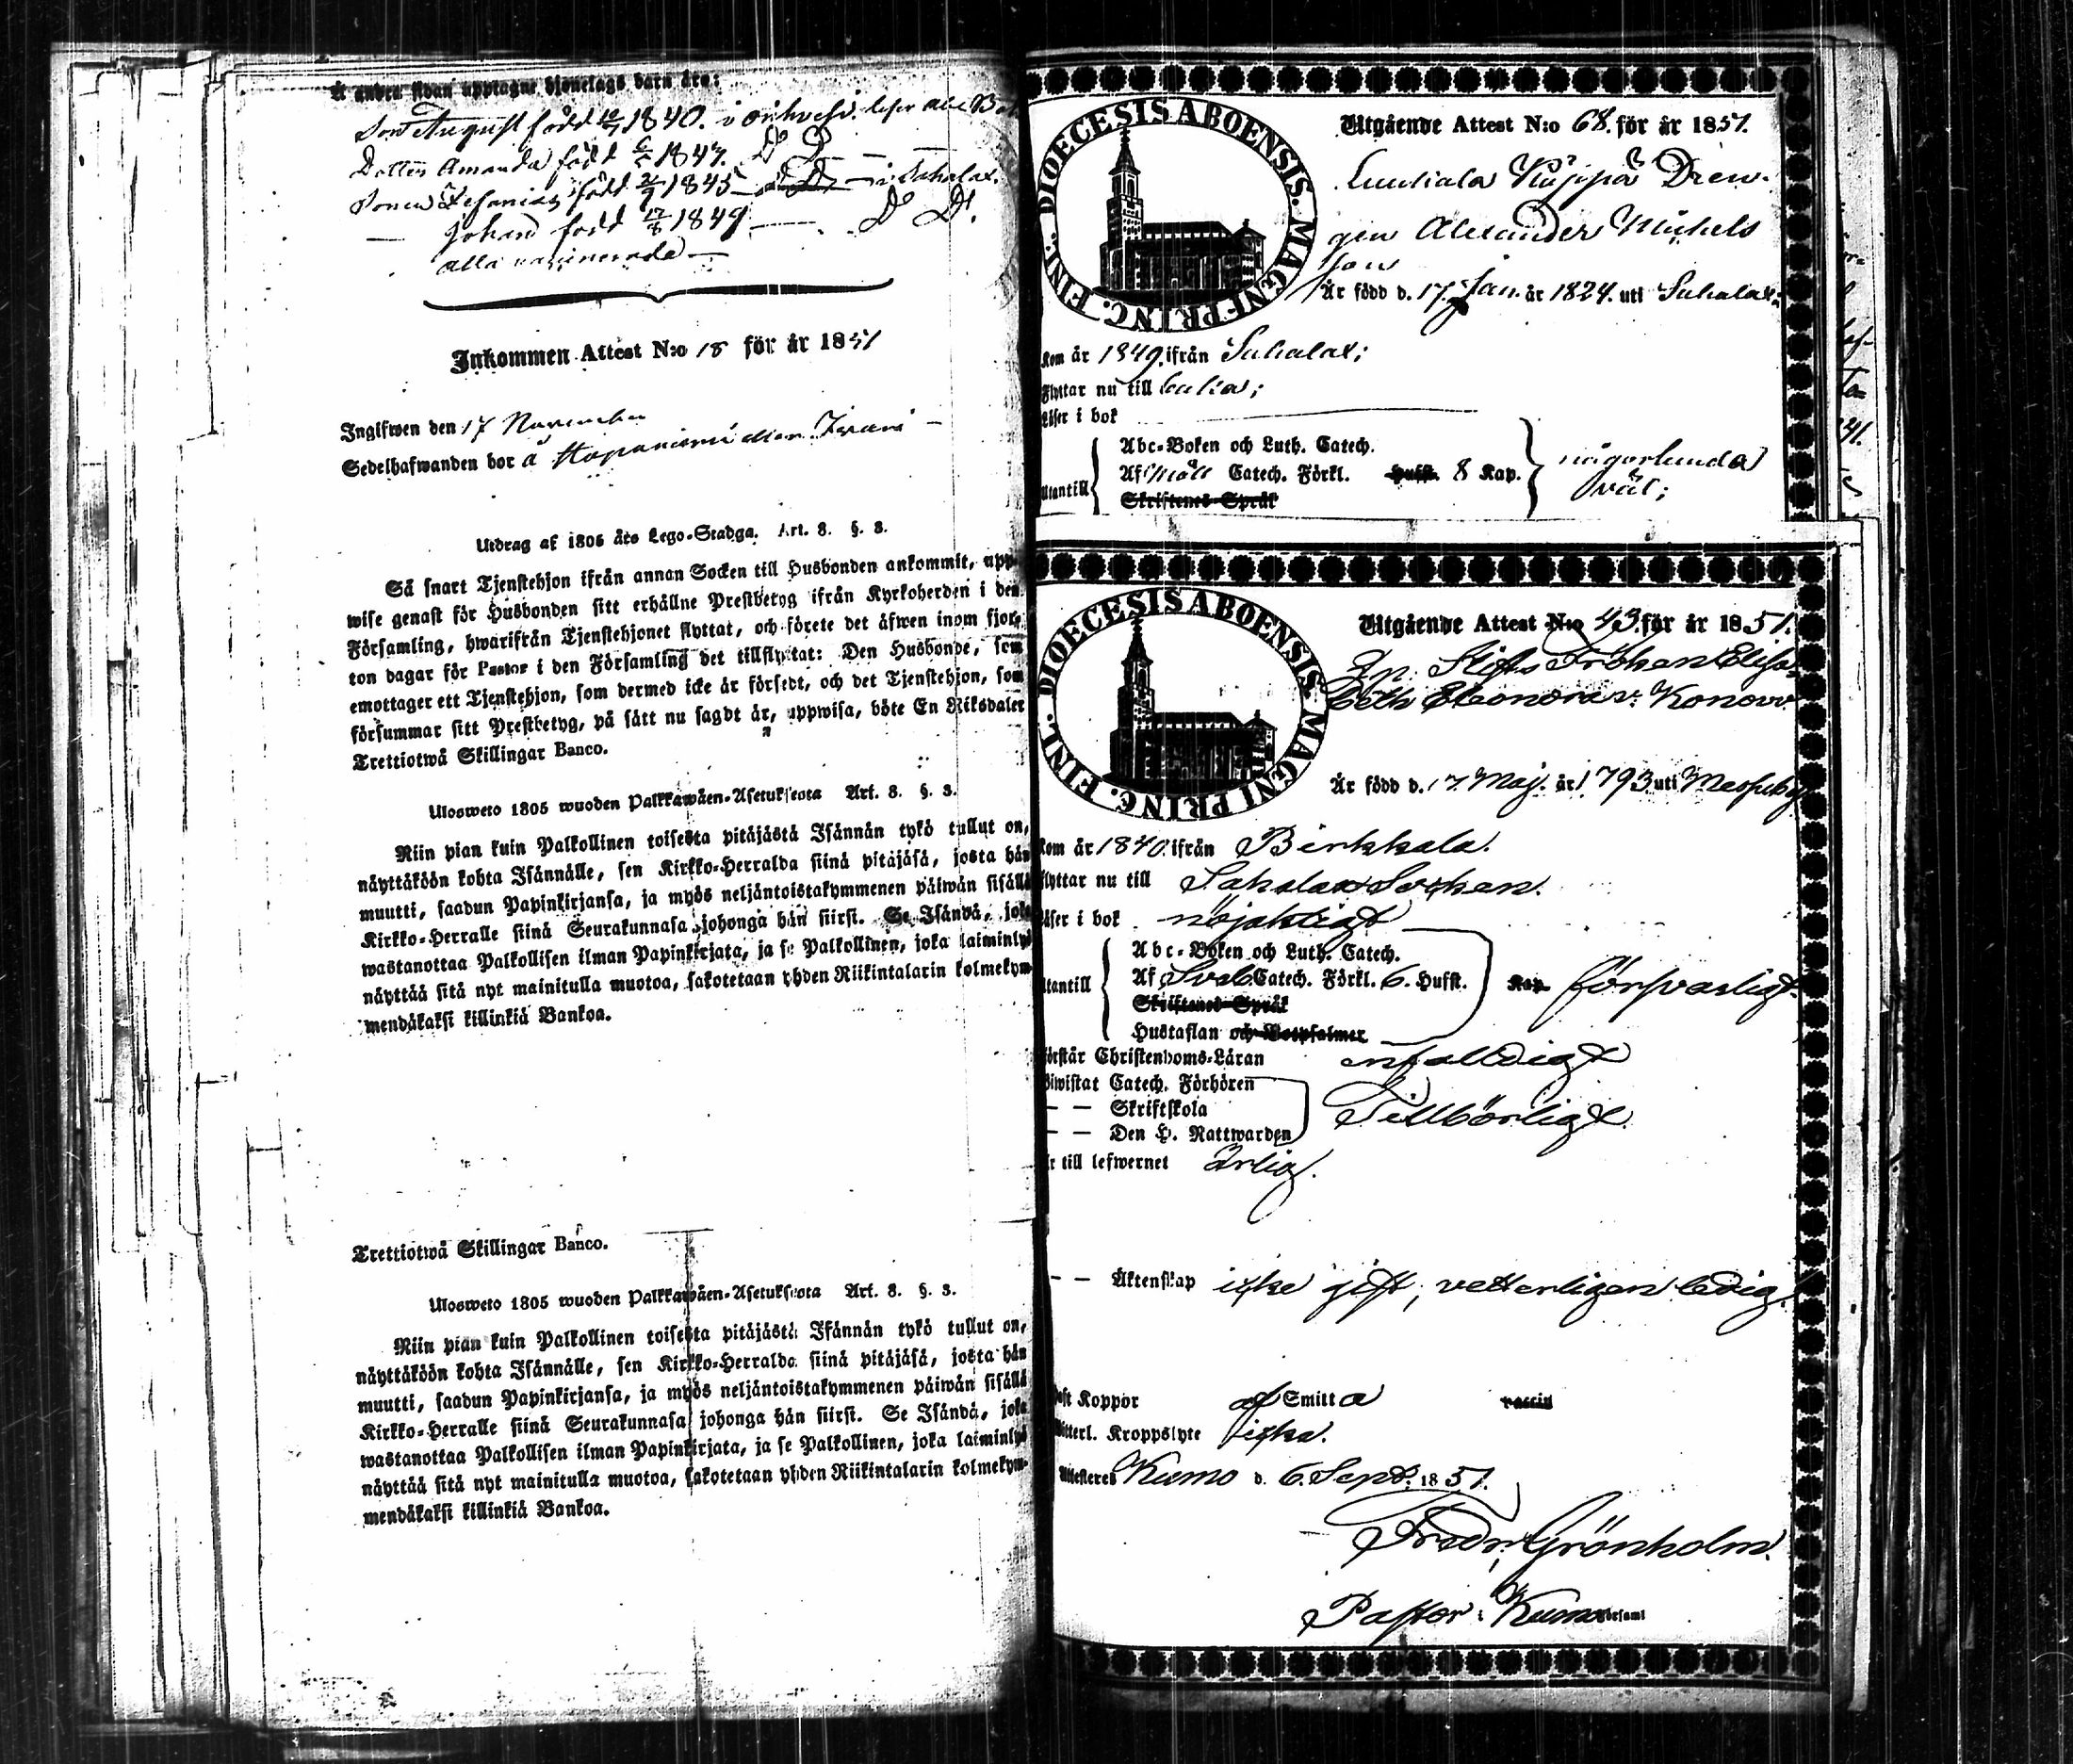 Å andra sidan upptagne hjonelags barn äro:
Son August född 1840. i
Dottren Amanda född 1847. D:o D:o
Sonen född 1845 i Sahalax.
— Johan född 17/8 1849 — D:o D:o.
alla vaccinerade —
Inkommen Attest N:o 18 för år 1851
Ingifwen den 17 November
Sedelhafwanden bor å
Utdrag af 1805 års Lego-Stadga. Art. 8. §. 3.
Så snart Tjenstehjon ifrån annan Socken till Husbonden ankommit, upp-
wise genast för Husbonden sitt erhållne Prestbetyg ifrån Kyrkoherden i den
Församling, hwarifrån Tjenstehjonet flyttat, och förete det äfwen inom fjor-
ton dagar för Pastor i den Församling det tillflyttat: Den Husbonde, som
emottager ett Tjenstehjon, som dermed icke är försedt, och det Tjenstehjon, som
försummar sitt Prestbetyg, på sätt nu sagdt är, uppwisa, böte En Riksdaler
Trettiotwå Skillingar Banco.
Ulosweto 1805 wuoden Palkkawäen-Asetuksesta Art. 8. §. 3.
Niin pian kuin Palkollinen toisesta pitäjästä Isännän tykö tullut on,
näyttäköön kohta Isännälle, sen Kirkko-Herralda siinä pitäjäsä, josta hän
muutti, saadun Papinkirjansa, ja myös neljäntoistakymmenen päiwän sisällä
Kirkko-Herralle siinä Seurakunnasa johonga hän siirsi. Se Isändä, joka
wastanottaa Palkollisen ilman Papinkirjata, ja se Palkollinen, joka laiminlyö
näyttää sitä nyt mainitulla muotoa, sakotetaan yhden Riikintalarin kolmekym-
mendäkaksi killinkiä Bankoa.
Trettiotwå Skillingar Banco.
Ulosweto 1805 wuoden Palkkawäen-Asetuksesta Art. 8. §. 3.
Niin pian kuin Palkollinen toisesta pitäjästä Isännän tykö tullut on,
näyttäköön kohta Isännälle, sen Kirkko-Herralda siinä pitäjäsä, josta hän
muutti, saadun Papinkirjansa, ja myös neljäntoistakymmenen päiwän sisällä
Kirkko-Herralle siinä Seurakunnasa johonga hän siirsi. Se Isändä, joka
wastanottaa Palkollisen ilman Papinkirjata, ja se Palkollinen, joka laiminlyö
näyttää sitä nyt mainitulla muotoa, sakotetaan yhden Riikintalarin kolmekym-
mendäkaksi killinkiä Bankoa.
DIOECESIS ABOENSIS. MAGNI PRINC. FINL.
Utgående Attest N:o 68. för år 1851.
Dren-
gen Alexander Michels
son
Är född d. 17 Jan. år 1824. uti Sahalax;
Kom år 1849. ifrån Sahalax;
Flyttar nu till
Läser i bok
Abc-Boken och Luth. Catech.
Utantill Af Möll Catech. Förkl. Hufst. 8 Kap. någorlunda
väl;
Skriftenes Språk
DIOECESIS ABOENSIS. MAGNI PRINC. FINL.
Utgående Attest N:o 43. för år 1851.
Stifts Fröken Elisa-
beth Eleonora v: Konow
Är född d. 17. Maj. år 1793 uti Messuby
Kom år 1840. ifrån Birkkala.
Flyttar nu till Sahalax Sochen.
Läser i bok nöjaktigt
Abc-Boken och Luth. Catech.
Utantill Af Sveb Catech. Förkl. 6. Hufst. Kap. försvarligt.
Skriftenes Språk
Hustaflan och Botpsalmer
Förstår Christendoms-Läran enfalldigt
Biwistat Catech. Förhören
— — Skriftskola Tillbörligt
— — Den H. Nattwarden
Är till lefwernet ärlig.
— — Äktenskap icke gift, vetterligen ledig.
Haft Koppor af Smitta vaccin
Witterl. Kroppslyte icke.
Attesteres Kumo d. 6. Sept. 1851.
Fredr. Grönholm.
Pastor i Kumo